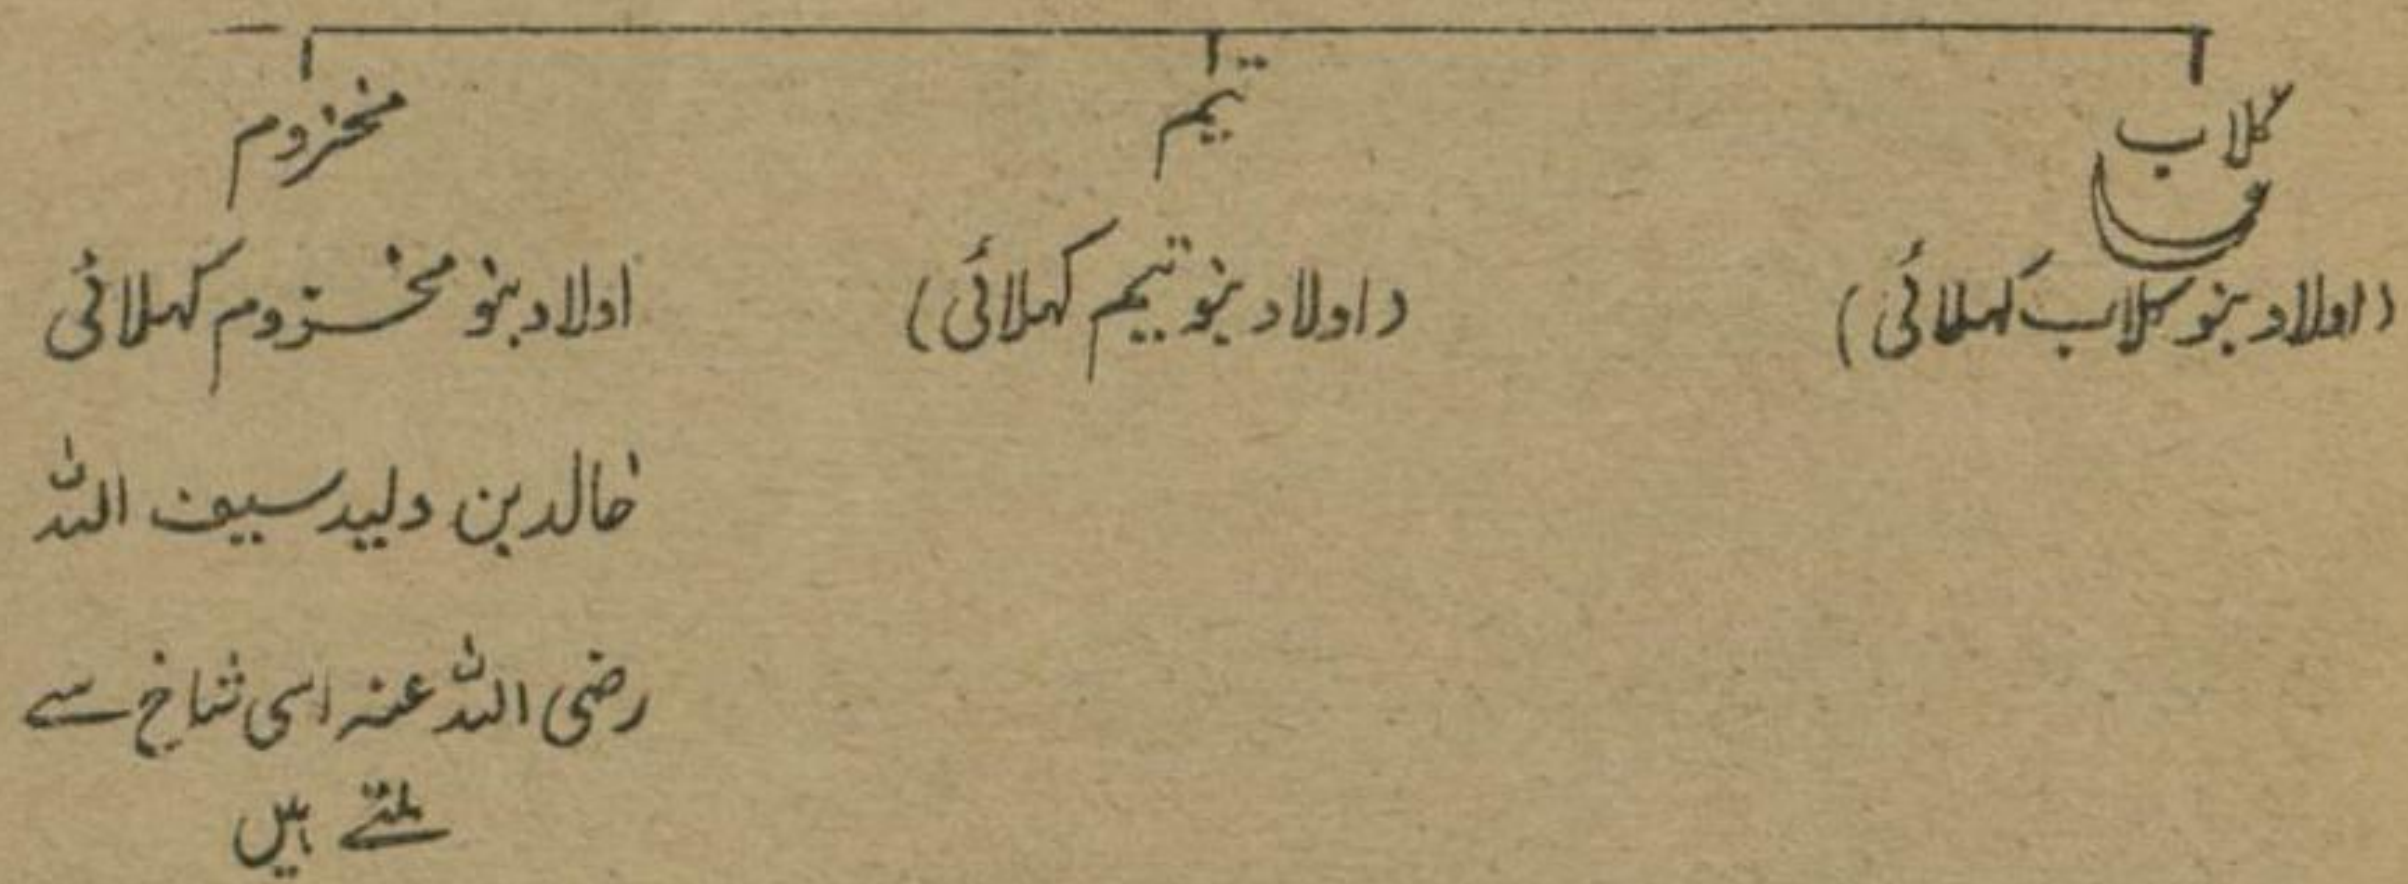 کلاب
تیم
مخزوم
(اولاد بنو کلاب کہلائی)
(اولاد بنو تیم کہلائی)
اولاد بنو مخزوم کہلائی
خالد بن ولید سیف اللہ
رضی اللہ عنہ اسی شاخ سے
ملتے ہیں